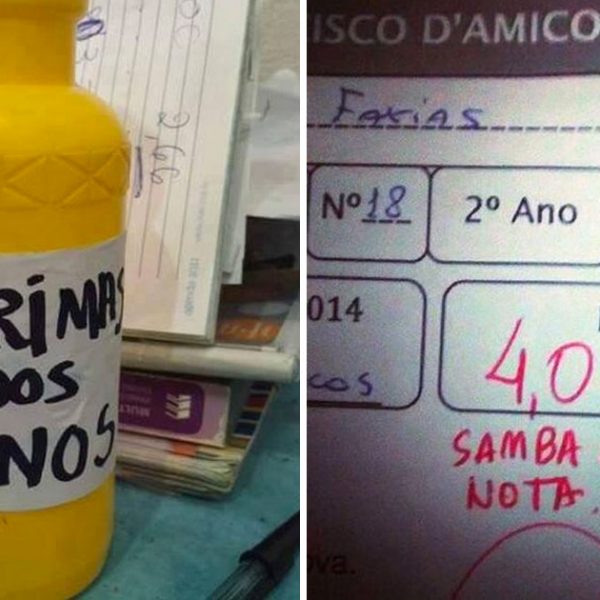 RIMAS
DOS
NOS
2,66
MULT
ISCO D'AMICO
Farias
Nº 18
2º Ano
014
cos
4,0
SAMBA
NOTA.
ova.